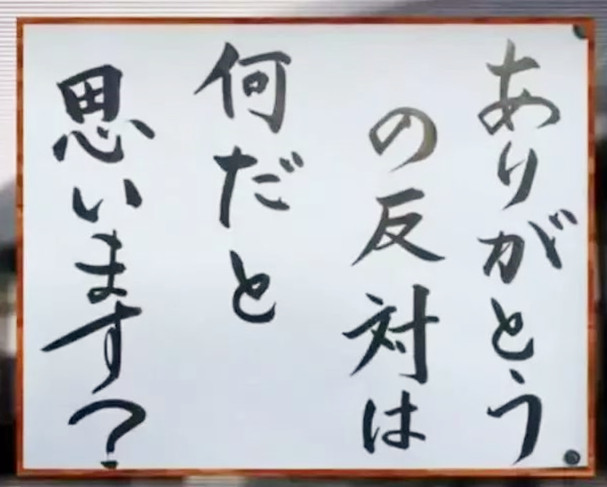 ありがとう
の反対は
何だと
思います？